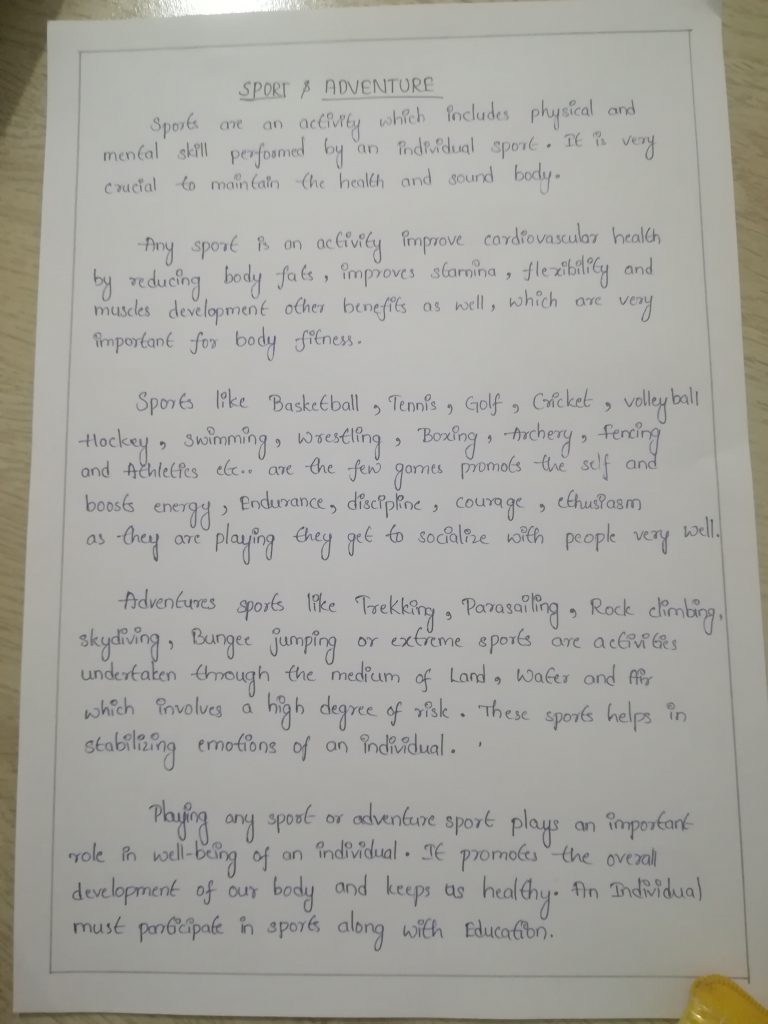 SPORT & ADVENTURE
Sports are an activity which includes physical and
mental skill performed by an individual sport. It is very
crucial to maintain the health and sound body.
Any sport is an activity improve cardiovascular health
by reducing body fats, improves stamina, flexibility and
muscles development other benefits as well, which are very
important for body fitness.
Sports like Basketball, Tennis, Golf, Cricket, volleyball
Hockey, swimming, wrestling, Boxing, Archery, fencing
and Athletics etc.. are the few games promots the self and
boosts energy, Endurance, discipline, courage, ethusiasm
as they are playing they get to socialize with people very well.
Adventures sports like Trekking, Parasailing, Rock climbing,
skydiving, Bungee jumping or extreme sports are activities
undertaken through the medium of Land, Water and Air
which involves a high degree of risk. These sports helps in
stabilizing emotions of an individual.
Playing any sport or adventure sport plays an important
role in well-being of an individual. It promotes the overall
development of our body and keeps us healthy. An Individual
must participate in sports along with Education.